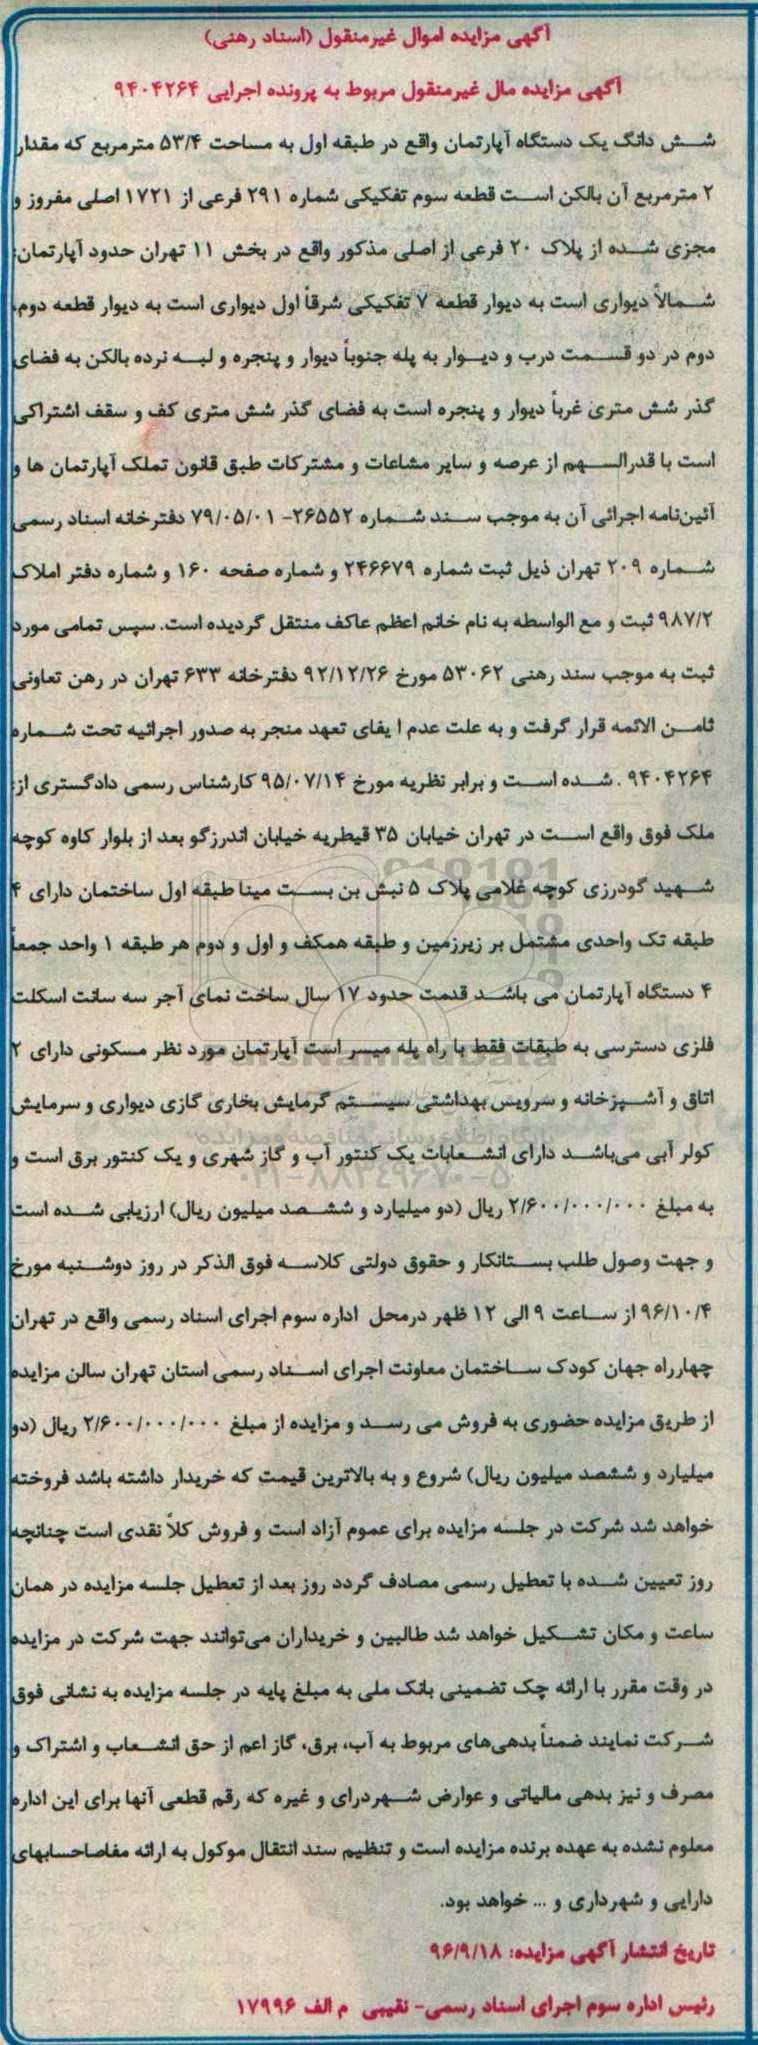 آگهی مزایده اموال غیرمنقول (اسناد رهنی)
آگهی مزایده مال غیرمنقول مربوط به پرونده اجرایی ۹۴۰۴۲۶۴
شش دانگ یک دستگاه آپارتمان واقع در طبقه اول به مساحت ۵۳/۴ مترمربع که مقدار
۲ مترمربع آن بالکن است قطعه سوم تفکیکی شماره ۲۹۱ فرعی از ۱۷۲۱ اصلی مفروز و
مجزی شده از پلاک ۲۰ فرعی از اصلی مذکور واقع در بخش ۱۱ تهران حدود آپارتمان:
شمالاً دیواری است به دیوار قطعه ۷ تفکیکی شرقاً اول دیواری است به دیوار قطعه دوم،
دوم در دو قسمت درب و دیوار به پله جنوباً دیوار و پنجره و لبه نرده بالکن به فضای
گذر شش متری غرباً دیوار و پنجره است به فضای گذر شش متری کف و سقف اشتراکی
است با قدرالسهم از عرصه و سایر مشاعات و مشترکات طبق قانون تملک آپارتمان ها و
آئین‌نامه اجرائی آن به موجب سند شماره ۲۶۵۵۲- ۷۹/۰۵/۰۱ دفترخانه اسناد رسمی
شماره ۲۰۹ تهران ذیل ثبت شماره ۲۴۶۶۷۹ و شماره صفحه ۱۶۰ و شماره دفتر املاک
۹۸۷/۲ ثبت و مع الواسطه به نام خانم اعظم عاکف منتقل گردیده است. سپس تمامی مورد
ثبت به موجب سند رهنی ۵۳۰۶۲ مورخ ۹۲/۱۲/۲۶ دفترخانه ۶۳۳ تهران در رهن تعاونی
ثامن الائمه قرار گرفت و به علت عدم ا یفای تعهد منجر به صدور اجرائیه تحت شماره
۹۴۰۴۲۶۴ . شده است و برابر نظریه مورخ ۹۵/۰۷/۱۴ کارشناس رسمی دادگستری از:
ملک فوق واقع است در تهران خیابان ۳۵ قیطریه خیابان اندرزگو بعد از بلوار کاوه کوچه
شهید گودرزی کوچه غلامی پلاک ۵ نبش بن بست مینا طبقه اول ساختمان دارای ۴
طبقه تک واحدی مشتمل بر زیرزمین و طبقه همکف و اول و دوم هر طبقه ۱ واحد جمعاً
۴ دستگاه آپارتمان می باشد قدمت حدود ۱۷ سال ساخت نمای آجر سه سانت اسکلت
فلزی دسترسی به طبقات فقط با راه پله میسر است آپارتمان مورد نظر مسکونی دارای ۲
اتاق و آشپزخانه و سرویس بهداشتی سیستم گرمایش بخاری گازی دیواری و سرمایش
کولر آبی می‌باشد دارای انشعابات یک کنتور آب و گاز شهری و یک کنتور برق است و
به مبلغ ۲/۶۰۰/۰۰۰/۰۰۰ ریال (دو میلیارد و ششصد میلیون ریال) ارزیابی شده است
و جهت وصول طلب بستانکار و حقوق دولتی کلاسه فوق الذکر در روز دوشنبه مورخ
۹۶/۱۰/۴ از ساعت ۹ الی ۱۲ ظهر درمحل اداره سوم اجرای اسناد رسمی واقع در تهران
چهارراه جهان کودک ساختمان معاونت اجرای اسناد رسمی استان تهران سالن مزایده
از طریق مزایده حضوری به فروش می رسد و مزایده از مبلغ ۲/۶۰۰/۰۰۰/۰۰۰ ریال (دو
میلیارد و ششصد میلیون ریال) شروع و به بالاترین قیمت که خریدار داشته باشد فروخته
خواهد شد شرکت در جلسه مزایده برای عموم آزاد است و فروش کلاً نقدی است چنانچه
روز تعیین شده با تعطیل رسمی مصادف گردد روز بعد از تعطیل جلسه مزایده در همان
ساعت و مکان تشکیل خواهد شد طالبین و خریداران می‌توانند جهت شرکت در مزایده
در وقت مقرر با ارائه چک تضمینی بانک ملی به مبلغ پایه در جلسه مزایده به نشانی فوق
شرکت نمایند ضمناً بدهی‌های مربوط به آب، برق، گاز اعم از حق انشعاب و اشتراک و
مصرف و نیز بدهی مالیاتی و عوارض شهردرای و غیره که رقم قطعی آنها برای این اداره
معلوم نشده به عهده برنده مزایده است و تنظیم سند انتقال موکول به ارائه مفاصاحسابهای
دارایی و شهرداری و ... خواهد بود.
تاریخ انتشار آگهی مزایده: ۹۶/۹/۱۸
رئیس اداره سوم اجرای اسناد رسمی- نقیبی م الف ۱۷۹۹۶